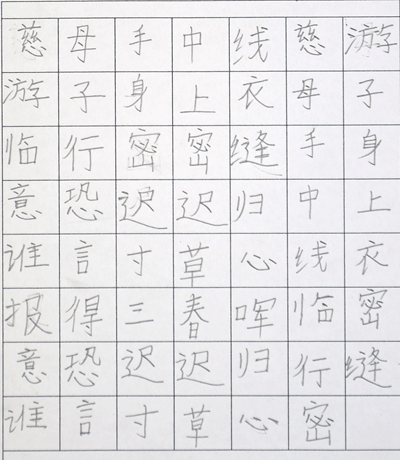 慈母手中线慈游
游子身上衣母子
临行密密缝手身
意恐迟迟归中上
谁言寸草心线衣
报得三春晖临密
意恐迟迟归行缝
谁言寸草心密